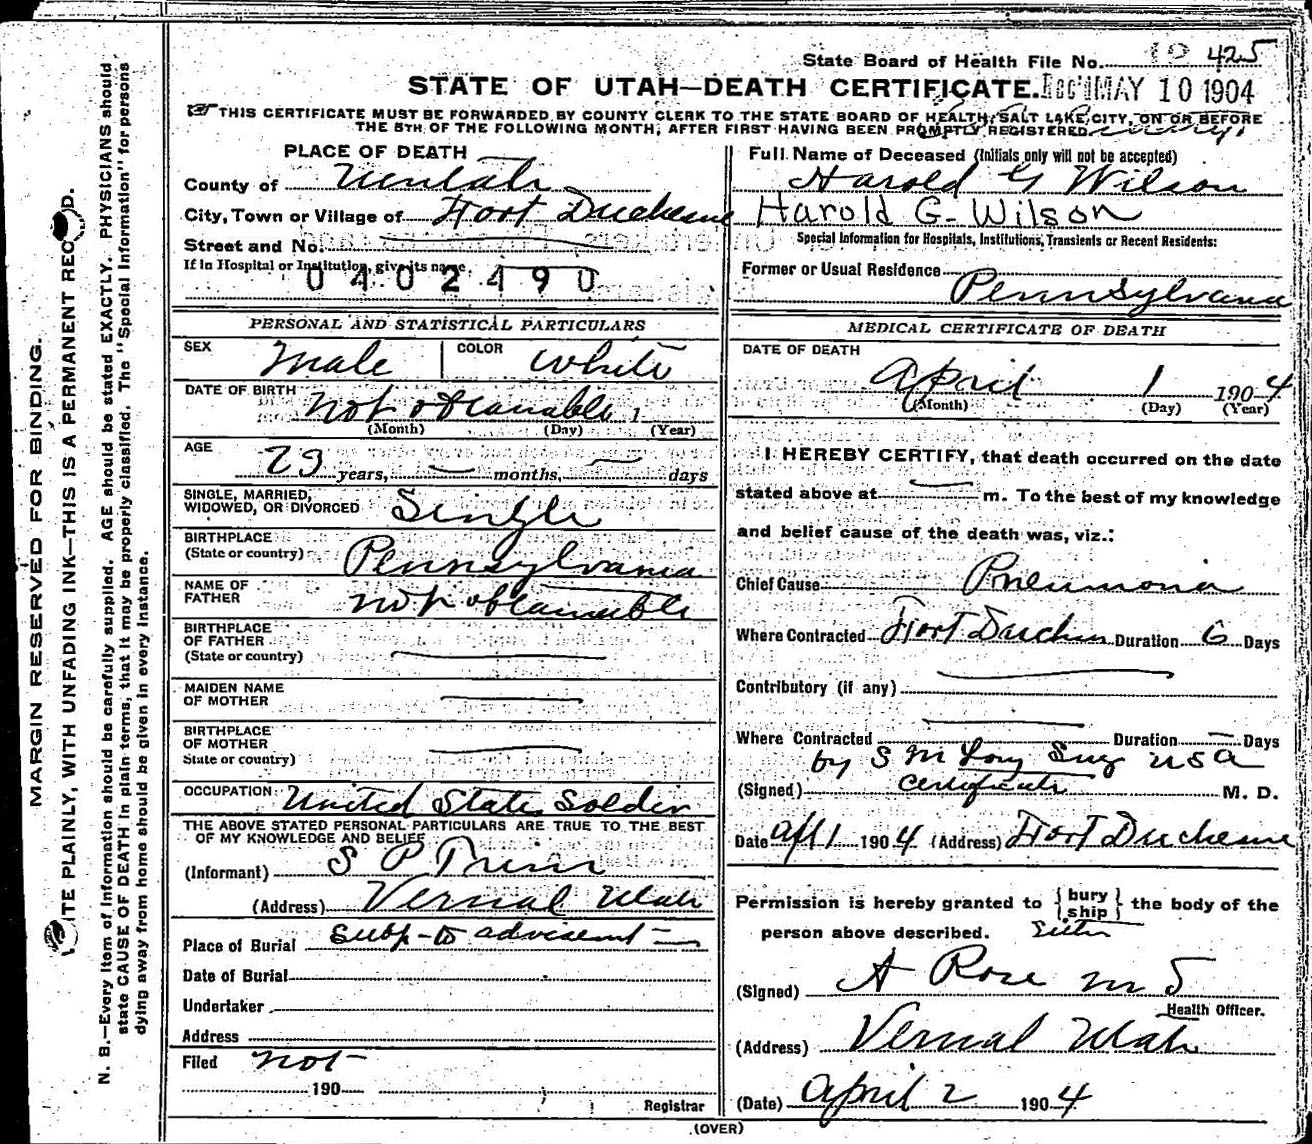 State Board of Health File No. 19 425
STATE OF UTAH—DEATH CERTIFICATE. Rec'd MAY 10 1904
THIS CERTIFICATE MUST BE FORWARDED BY COUNTY CLERK TO THE STATE BOARD OF HEALTH, SALT LAKE CITY, ON OR BEFORE
THE 5TH OF THE FOLLOWING MONTH, AFTER FIRST HAVING BEEN PROMPTLY REGISTERED
PLACE OF DEATH
County of Uentah
City, Town or Village of Fort Duchesne
Street and No.
If in Hospital or Institution, give its name
0402490
Full Name of Deceased (Initials only will not be accepted)
Harold G Wilson
Harold G. Wilson
Special Information for Hospitals, Institutions, Transients or Recent Residents:
Former or Usual Residence
Pennsylvana
PERSONAL AND STATISTICAL PARTICULARS
SEX Male COLOR white
DATE OF BIRTH not obtanable
(Month) (Day) (Year)
AGE 23 years, — months, — days
SINGLE, MARRIED,
WIDOWED, OR DIVORCED Single
BIRTHPLACE
(State or country) Pennsylvania
NAME OF
FATHER not obtainable
BIRTHPLACE
OF FATHER
(State or country) —
MAIDEN NAME
OF MOTHER —
BIRTHPLACE
OF MOTHER
State or country) —
OCCUPATION United State Soldier
THE ABOVE STATED PERSONAL PARTICULARS ARE TRUE TO THE BEST
OF MY KNOWLEDGE AND BELIEF
(Informant) S P Trim
(Address) Vernal Utah
Place of Burial subp-to advisemt —
Date of Burial
Undertaker
Address
Filed not
190
Registrar
MEDICAL CERTIFICATE OF DEATH
DATE OF DEATH
April 1 1904
(Month) (Day) (Year)
I HEREBY CERTIFY, that death occurred on the date
stated above at — m. To the best of my knowledge
and belief cause of the death was, viz.:
Chief Cause Pneumonia
Where Contracted Fort Duchesn Duration 6 Days
Contributory (if any) —
Where Contracted — Duration — Days
by S M Long Surg USA
(Signed) Certificate M. D.
Date Apl 1 1904 (Address) Fort Duchesne
Permission is hereby granted to {bury
ship} the body of the
person above described. Either
(Signed) A Rose M D
Health Officer.
(Address) Vernal Utah
(Date) April 2 1904
(OVER)
MARGIN RESERVED FOR BINDING.
WRITE PLAINLY, WITH UNFADING INK—THIS IS A PERMANENT RECORD.
N. B.—Every item of information should be carefully supplied. AGE should be stated EXACTLY. PHYSICIANS should
state CAUSE OF DEATH in plain terms, that it may be properly classified. The "Special Information" for persons
dying away from home should be given in every instance.